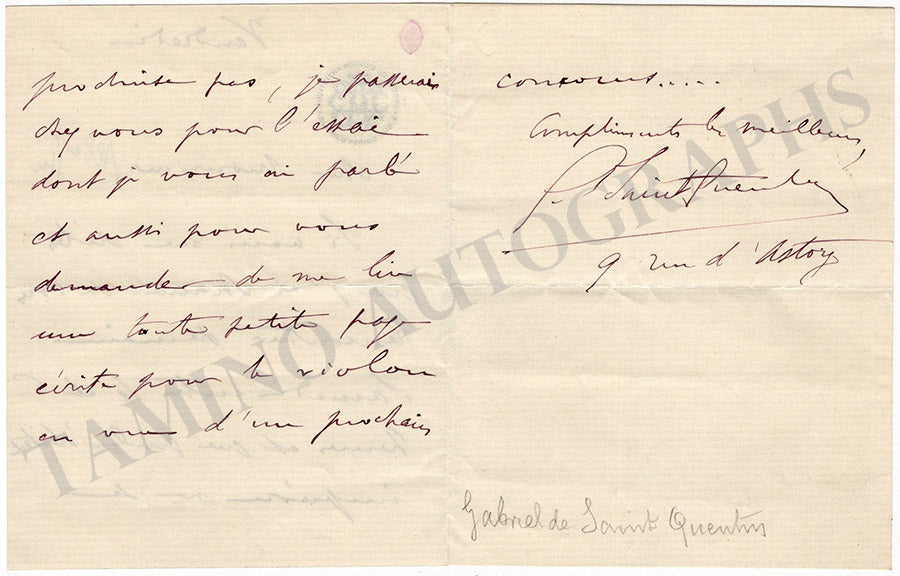 produise pas, je passerais
chez vous pour l'essai
dont je vous ai parlé
et aussi pour vous
demander de me lire
une toute petite page
écrite pour le violon
en vue d'un prochain
concours.....
Compliments les meilleurs,
G. Saint Quentin
9 rue d'Astorg
Gabriel de Saint Quentin
TAMINO AUTOGRAPHS
Vendredi